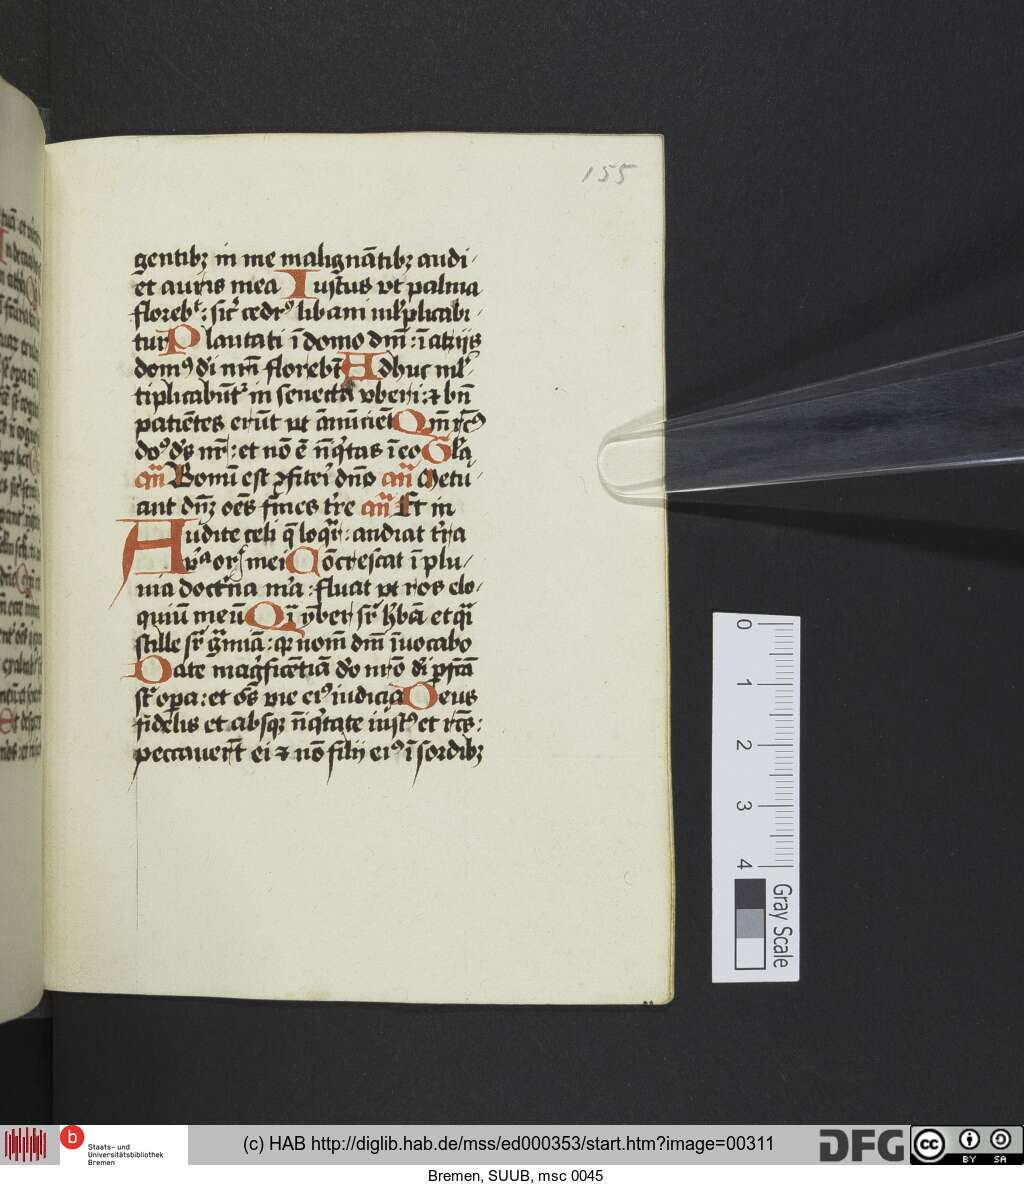 155
gentibꝫ in me malignãtibꝫ audi/
et auris mea Iustus vt palma
florebᵗ : sic̾ cedrꝰ libani ml̾plicabi/
tur Plantati ĩ domo dm̃ : ĩ atrijs
domꝰ di nr̃i florebt̃ Adhuc ml̾/
tiplicabũtᷣ in senecta vberi : ⁊ bñ
patiẽtes erũt vt ãnũciẽt Qm̃ rc̃ꝰ
doꝰ ds̃ nr̃ : et nõ ẽ
Bonũ est ꝯfiteri dño añ Metu/
ant dñꝫ oẽs fines tr̾e añ Et in
Audite celi q̃ loqr̃ : audiat tr̾a
v̾ba oris mei Cõcrescat ĩ plu/
uia doctr̾ina m̾a : fluat vt ros elo/
quiũ meũ Qi̾ ymber sr̾ h̾bã et qi̾
stille sr̾ g̾miã : qꝛ nom̃ dm̃ ĩuocabo
Date mag̾ficẽtiã do nr̾o di pf̾cã
st̾ opa : et oẽs vie eiꝰ iudicia Deus
fidelis et absqꝫ ĩiq̾tate iustꝰ et rc̾s :
peccauer̃t ei ⁊ nõ filij eiꝰ ĩ sordibꝫ
0
1
2
3
4
Gray Scale
b Staats- und
Universitätsbibliothek
Bremen
(c) HAB http://diglib.hab.de/mss/ed000353/start.htm?image=00311
DFG
cc BY SA
Bremen, SUUB, msc 0045